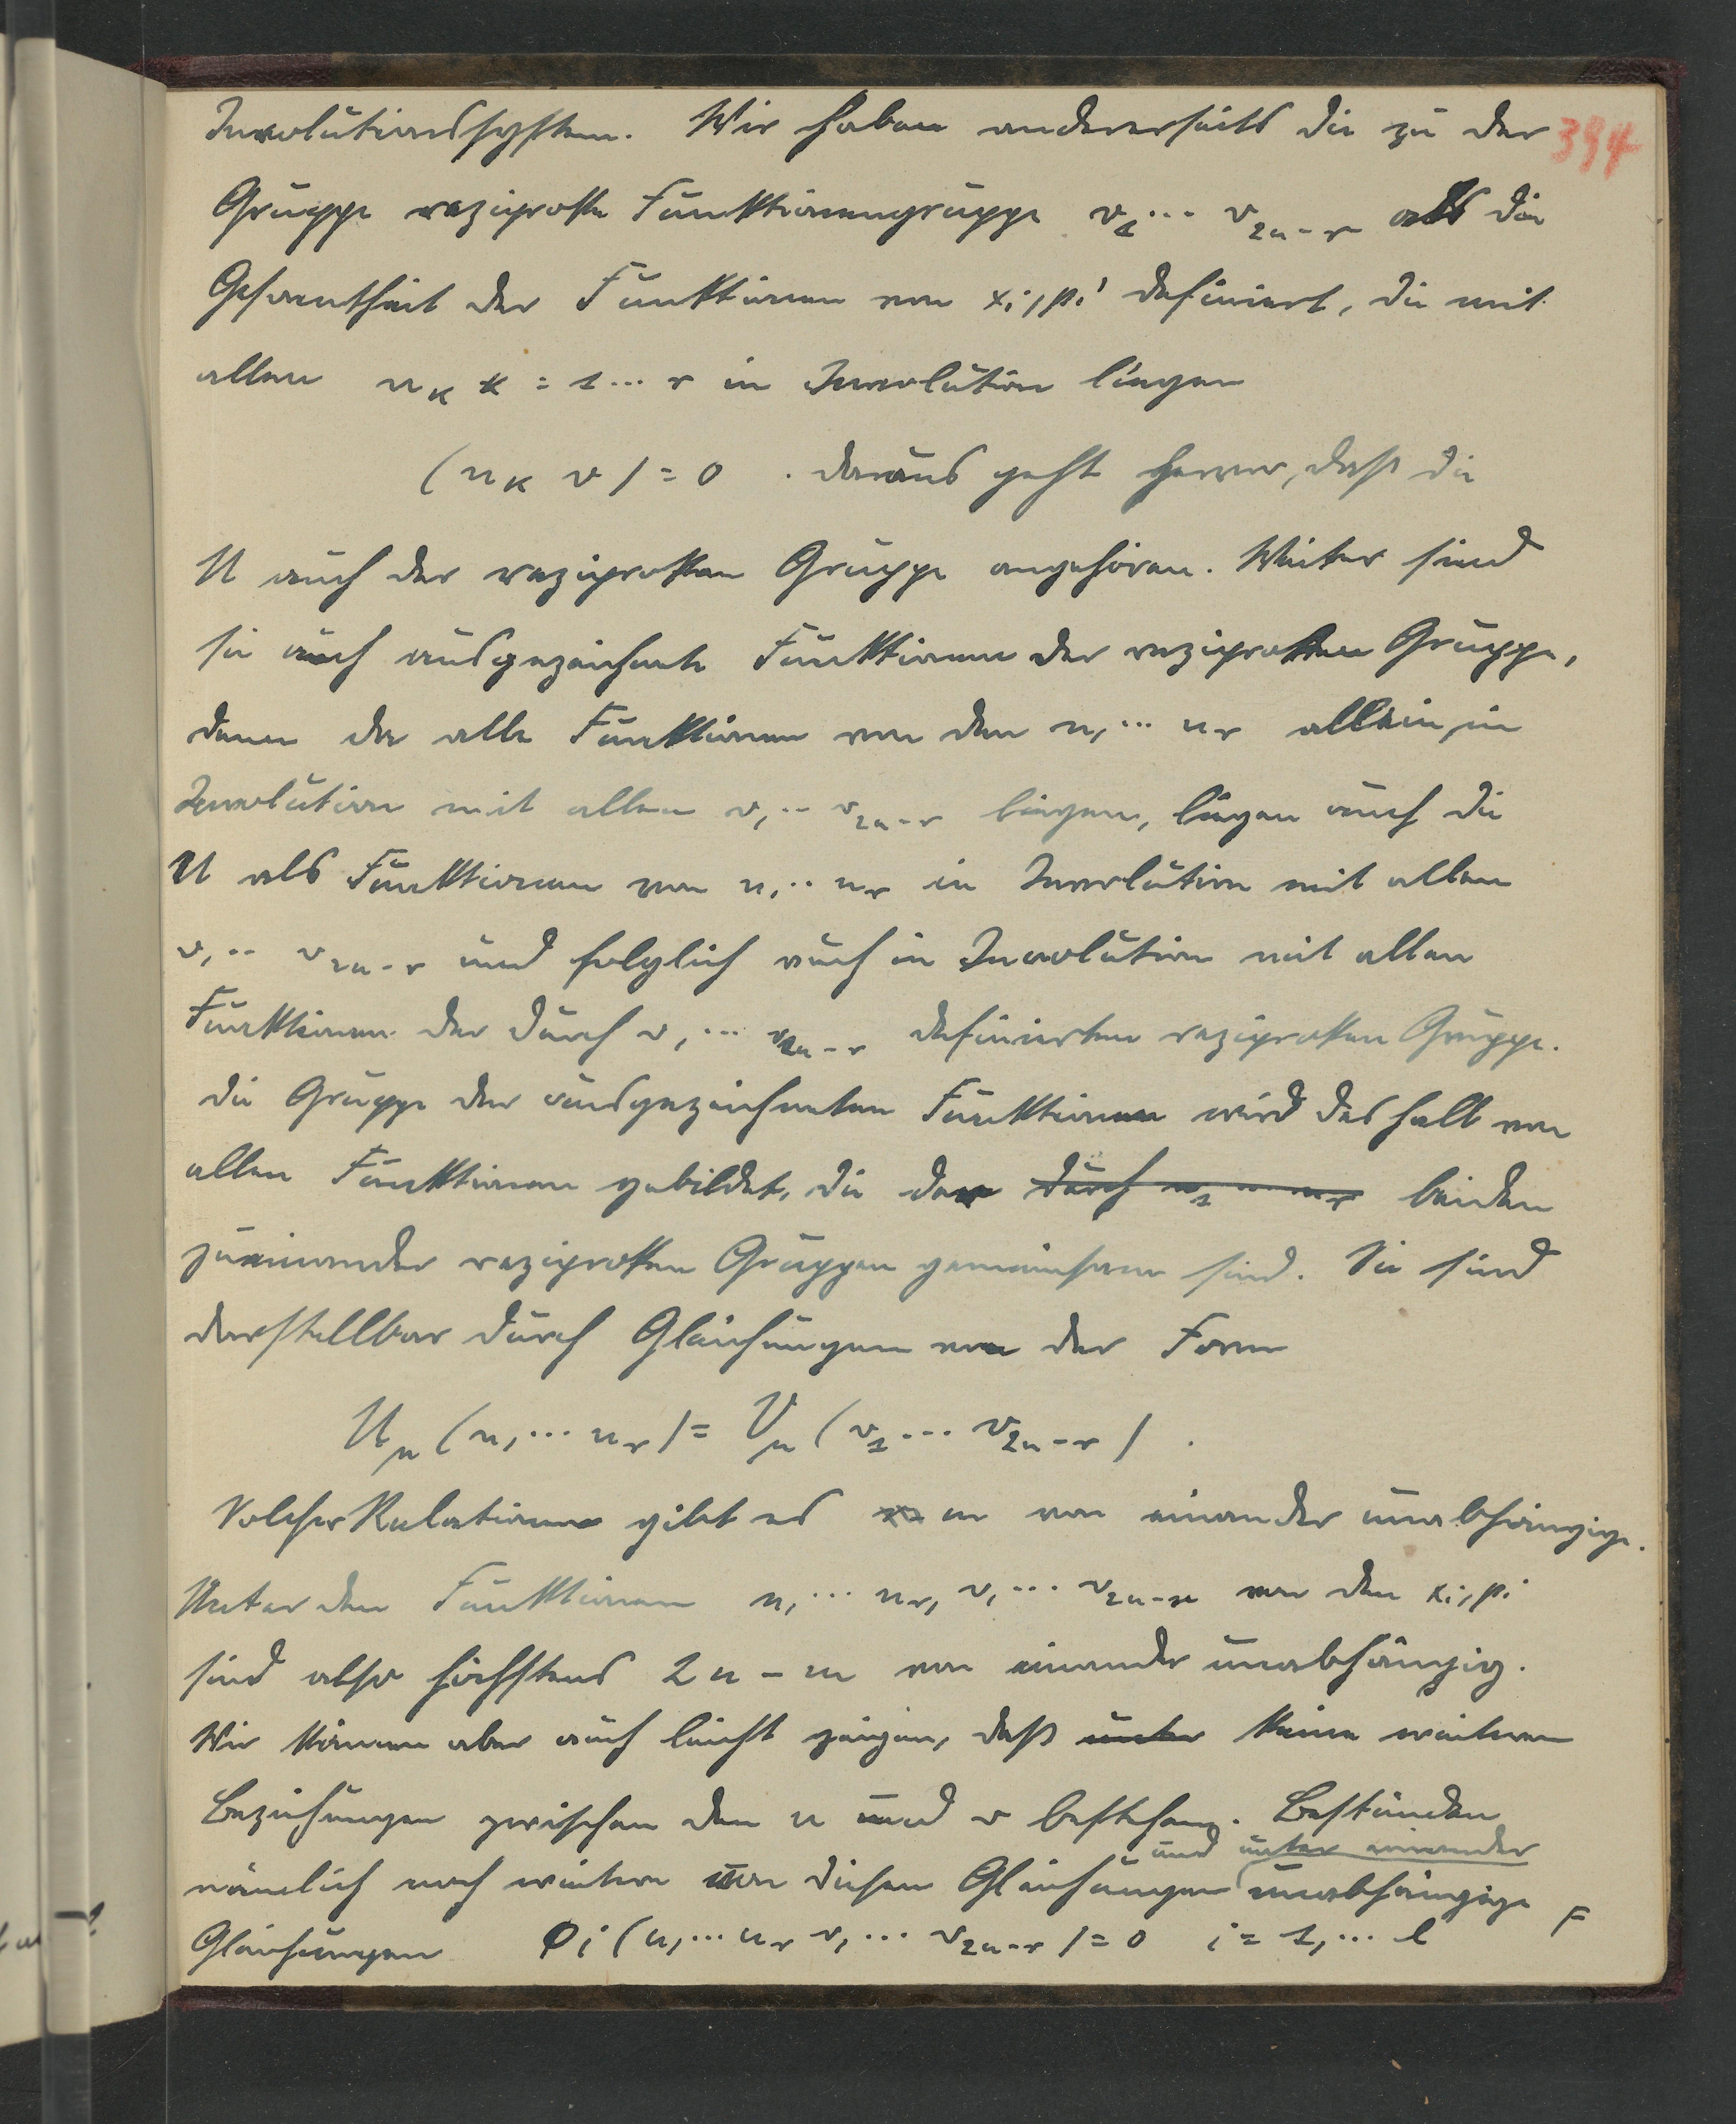 Involutionssystem. Wir haben andererseits die zu der 394
Gruppe reziproke Funktionengruppe v₁... v₂ₙ₋ᵣ als die
Gesamtheit der Funktionen von xᵢ, pᵢ definiert, die mit
allen uκ κ = 1... r in Involution liegen
(uκ v) = 0 . daraus geht hervor, daß die
U auch der reziproken Gruppe angehören. Weiter sind
sie auch ausgezeichnete Funktionen der reziproken Gruppe,
denn da alle Funktionen von den u₁... uᵣ allein, in
Involution mit allen v₁.. v₂ₙ₋ᵣ liegen, liegen auch die
U als Funktionen von u₁.. uᵣ in Involution mit allen
v₁.. v₂ₙ₋ᵣ und folglich auch in Involution mit allen
Funktionen der durch v₁... v₂ₙ₋ᵣ definierten reziproken Gruppe.
die Gruppe der ausgezeichneten Funktionen wird deshalb von
allen Funktionen gebildet, die den durch u₁ ... uᵣ beiden
zueinander reziproken Gruppen gemeinsam sind. Sie sind
darstellbar durch Gleichungen von der Form
Uμ (u₁... uᵣ) = Vμ (v₁... v₂ₙ₋ᵣ) .
Solcher Relationen gibt es m von einander unabhängige.
Unter den Funktionen u₁... uᵣ, v₁... v₂ₙ₋ᵣ von den xᵢ, pᵢ
sind also höchstens 2n – m von einander unabhängig.
Wir können aber auch leicht zeigen, daß unter keine weiteren
Beziehungen zwischen den u und v bestehen. Beständen
und unter einander
nämlich noch weitere von diesen Gleichungen unabhängige
Gleichungen Φᵢ (u₁... uᵣ v₁... v₂ₙ₋ᵣ) = 0 i = 1,... l F